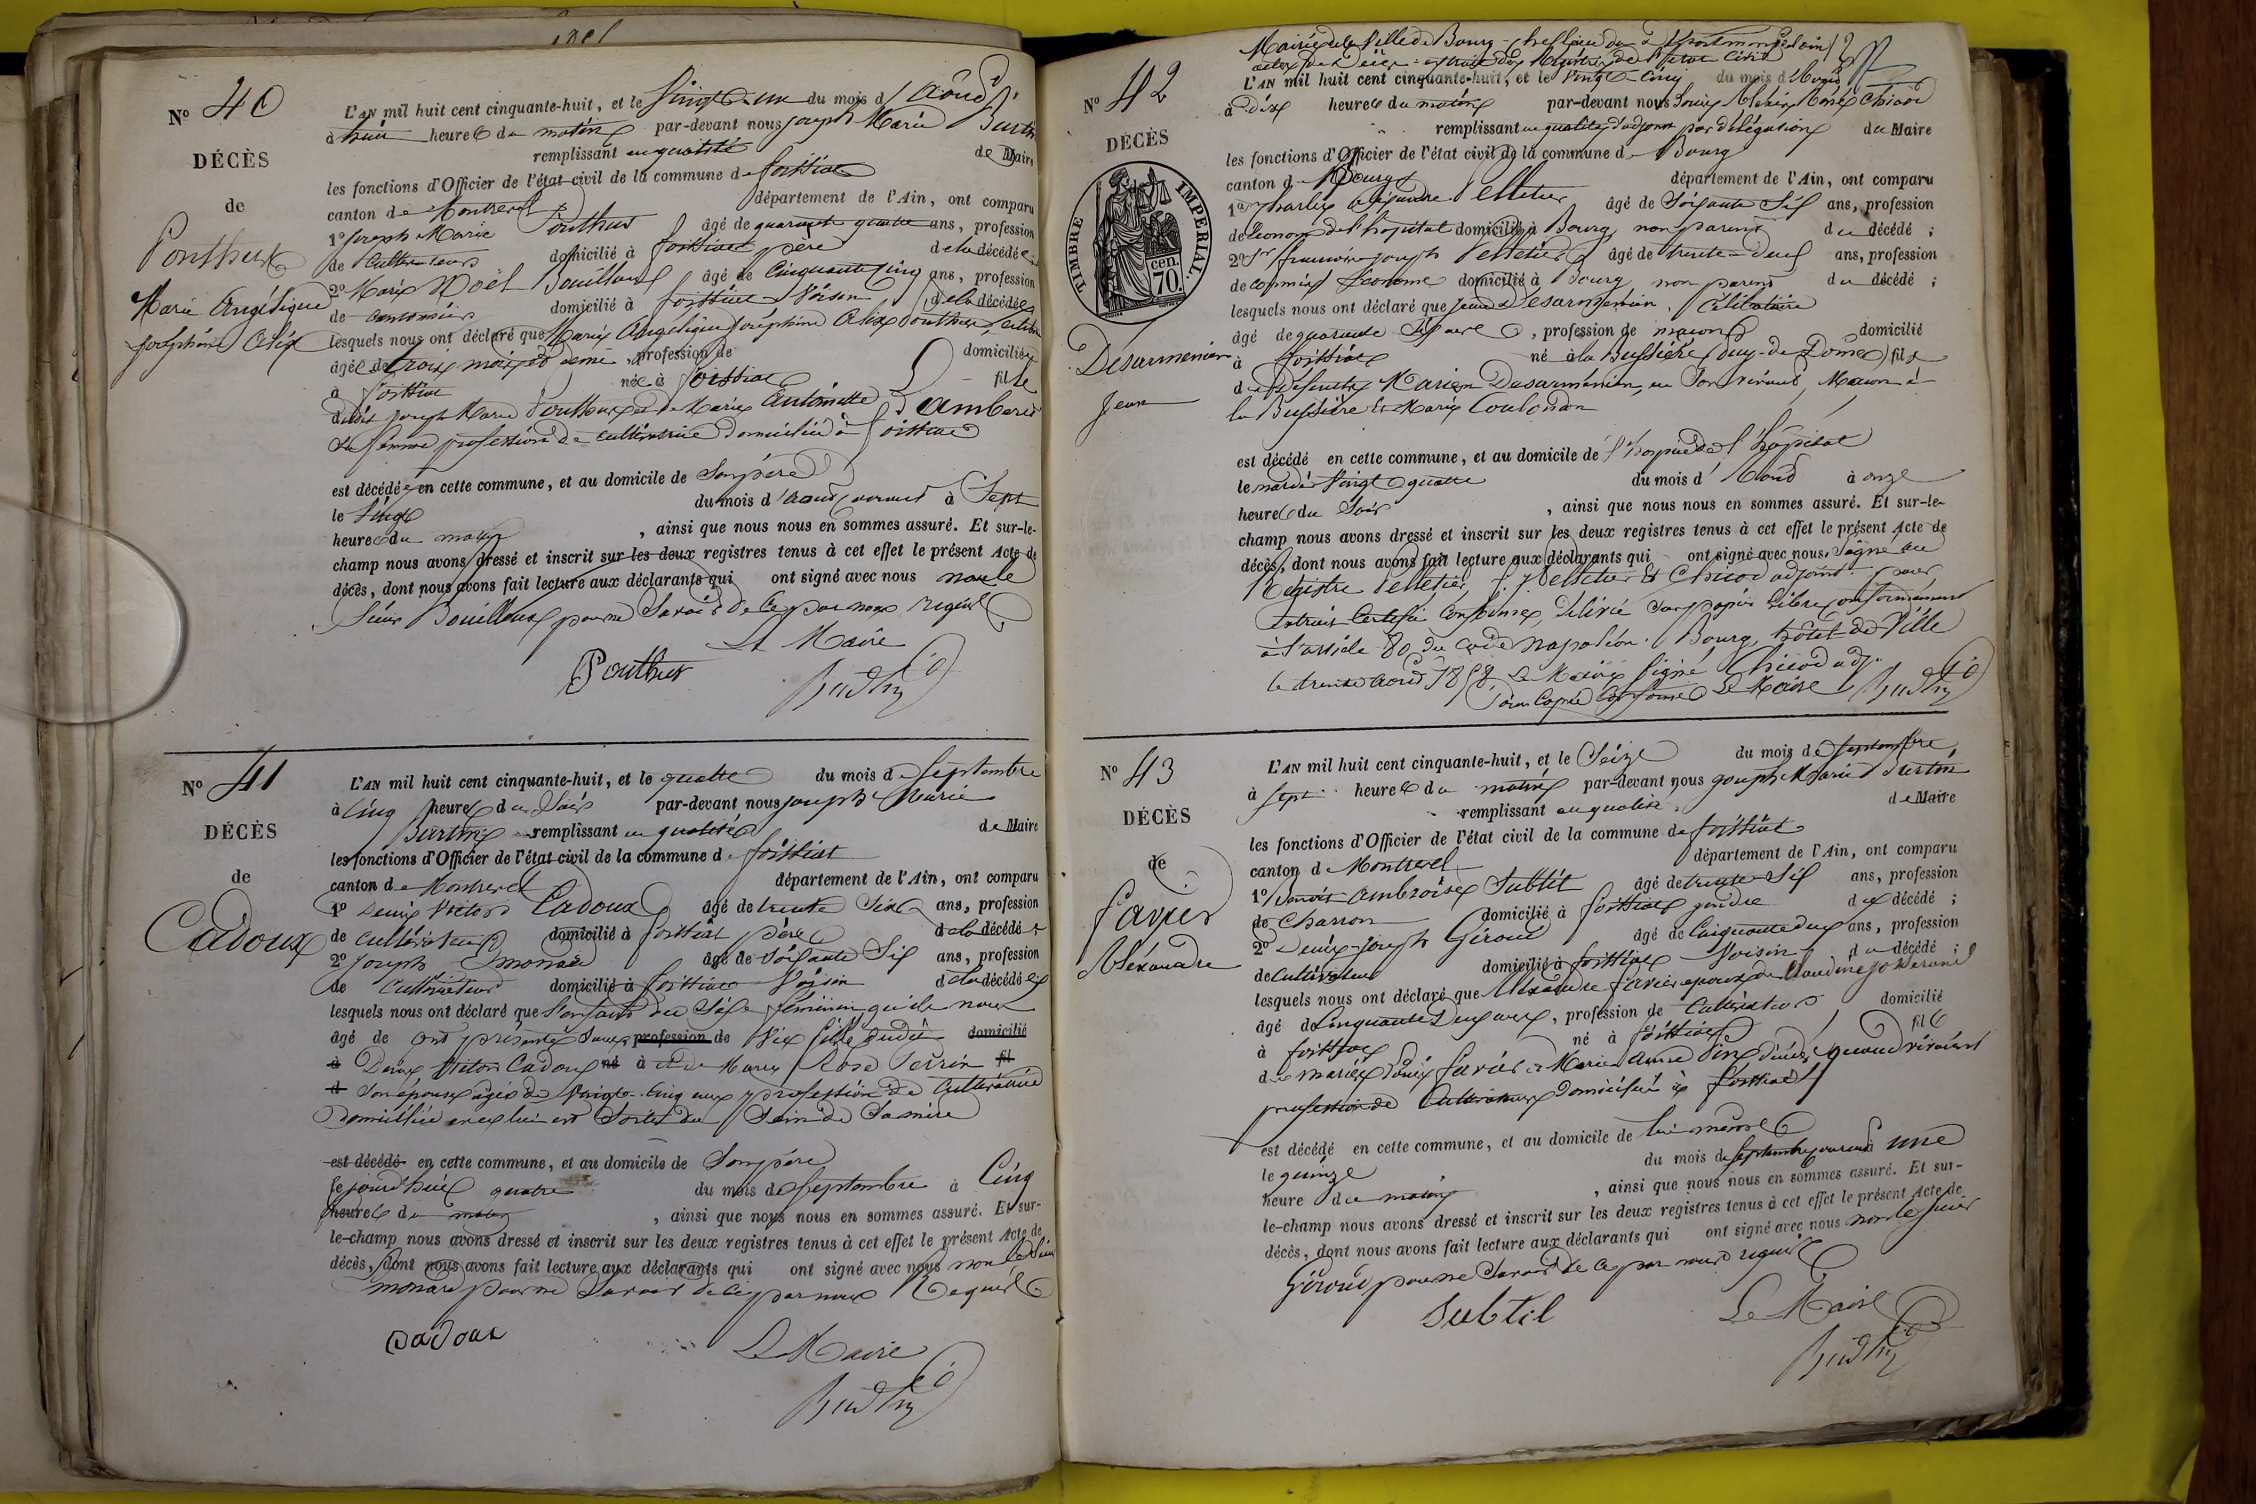 N° 40
DÉCÈS
de
Ponthus
Marie Angélique
Joséphine Alix
L'AN mil huit cent cinquante-huit, et le Vingt deux du mois d'Août
à huit heures du matin par-devant nous Joseph Marie Burtin
remplissant en qualité de Maire
les fonctions d'Officier de l'état civil de la commune de foissiat
canton de Montrevel département de l'Ain, ont comparu
1° Joseph Marie Ponthus âgé de quarante quatre ans, profession
de Cultivateur domicilié à foissiat père de la décédée
2° Marie Noël Bouilloux âgé de Cinquante Cinq ans, profession
de domicilié à foissiat Voisin de la décédée
lesquels nous ont déclaré que Marie Angélique Joséphine Alix Ponthus
âgée de trois mois et demi, profession de domiciliée
à foissiat née à foissiat fille
dudit Joseph Marie Ponthus et de Marie Antoinette
sa femme profession de cultivatrice domiciliée à foissiat
est décédée en cette commune, et au domicile de Son père
le Vingt du mois d'août courant à Sept
heures du matin, ainsi que nous nous en sommes assuré. Et sur-le-
champ nous avons dressé et inscrit sur les deux registres tenus à cet effet le présent Acte de
décès, dont nous avons fait lecture aux déclarants qui ont signé avec nous non le
Sieur Bouilloux pour ne Savoir de Ce par nous requis
Le Maire
Ponthus
Burtin
N° 41
DÉCÈS
de
Cadoux
L'AN mil huit cent cinquante-huit, et le quatre du mois de Septembre
à Cinq heures du Soir par-devant nous Joseph Marie
Burtin remplissant en qualité de Maire
les fonctions d'Officier de l'état civil de la commune de foissiat
canton de Montrevel département de l'Ain, ont comparu
1° Denis Victor Cadoux âgé de trente Six ans, profession
de Cultivateur domicilié à foissiat père de la décédée
2° Joseph Monard âgé de Soixante Six ans, profession
de Cultivateur domicilié à foissiat Voisin de la décédée
lesquels nous ont déclaré que l'enfant du Sexe féminin qu'ils nous
âgé de ont présenté Sans profession de Vie fille dudit domicilié
à Denis Victor Cadoux né à et de Marie Rose Perrin fil
d Son épouse âgée de Vingt-Cinq ans profession de Cultivatrice
Domiciliée avec lui est Sortie du Sein de Sa mère
est décédé en cette commune, et au domicile de Son père
le jourd'hui quatre du mois de Septembre à Cinq
heures du matin, ainsi que nous nous en sommes assuré. Et sur-
le-champ nous avons dressé et inscrit sur les deux registres tenus à cet effet le présent Acte de
décès, dont nous avons fait lecture aux déclarants qui ont signé avec nous non le Sieur
Monard pour ne Savoir de Ce par nous Requis
Cadoux
Le Maire
Burtin
N° 42
DÉCÈS
TIMBRE IMPÉRIAL.
70 cen.
Desarmenien
Jean
Mairie de la Ville de Bourg chef lieu du Département de l'ain
actes de Décès extrait des Registres de l'Etat Civil
L'AN mil huit cent cinquante-huit, et le Vingt-Cinq du mois d'Août
à dix heures du matin par-devant nous Chicod
remplissant en qualité d'adjoint par délégation du Maire
les fonctions d'Officier de l'état civil de la commune de Bourg
canton de Bourg département de l'Ain, ont comparu
1° Charles Alexandre Pelletier âgé de Soixante Six ans, profession
de Econome de l'hopital domicilié à Bourg, non parent du décédé ;
2° Sr françois Joseph Pelletier âgé de trente-deux ans, profession
de commis Econome domicilié à Bourg non parent du décédé ;
lesquels nous ont déclaré que Jean Desarmenien, Célibataire
âgé de quarante Six ans, profession de maçon domicilié
à foissiat né à la Bussière (Puy-de-Dôme) fils
de Désarménien, en Son vivant, Maçon à
la Bussière et Marie Coulondon
est décédé en cette commune, et au domicile de l'hospice de l'hôpital
le mardi Vingt quatre du mois d'Août à onze
heures du Soir, ainsi que nous nous en sommes assuré. Et sur-le-
champ nous avons dressé et inscrit sur les deux registres tenus à cet effet le présent Acte de
décès, dont nous avons fait lecture aux déclarants qui ont signé avec nous. Signé au
Registre Pelletier, f. J. Pelletier et Chicod adjoint. pour
Extrait Certifié Conforme, Délivré Sur papier Libre conformément
à l'article 80 du Code Napoléon. Bourg, hôtel de Ville
le trente août 1858, Le Maire Signé Chicod adj.
Pour Copie Conforme Le Maire Burtin
N° 43
DÉCÈS
de
favier
Alexandre
L'AN mil huit cent cinquante-huit, et le Seize du mois de Septembre,
à Sept heures du matin par-devant nous Joseph Marie Burtin
remplissant en qualité de Maire
les fonctions d'Officier de l'état civil de la commune de foissiat
canton de Montrevel département de l'Ain, ont comparu
1° Benoit Ambroise Subtil âgé de trente-Six ans, profession
de Charron domicilié à foissiat gendre du décédé ;
2° Denis-Joseph Giroud âgé de Cinquante deux ans, profession
de Cultivateur domicilié à foissiat Voisin du décédé ;
lesquels nous ont déclaré que Alexandre favier époux de Claudine
âgé de Cinquante Deux ans, profession de Cultivateur domicilié
à foissiat né à foissiat fils
de Marie Louis favier et Marie Anne quand vivaient
profession de Cultivateurs domiciliés à foissiat
est décédé en cette commune, et au domicile de lui même
le quinze du mois de Septembre courant à une
heure du matin, ainsi que nous nous en sommes assuré. Et sur-
le-champ nous avons dressé et inscrit sur les deux registres tenus à cet effet le présent Acte de
décès, dont nous avons fait lecture aux déclarants qui ont signé avec nous non le Sieur
Giroud pour ne Savoir de Ce par nous requis
Subtil
Le Maire
Burtin